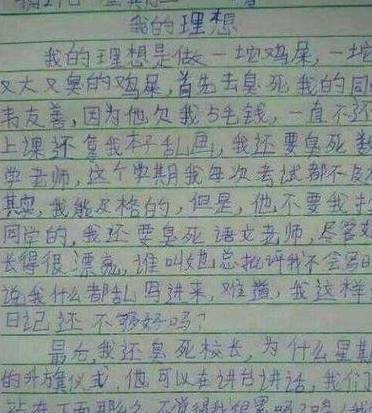 我的理想
我的理想是做一坨鸡屎,一坨
又大又臭的鸡屎,首先去臭死我的同
韦友善,因为他欠我5毛钱,一直不还
上课还拿我本子乱画,我还要臭死数
学老师,这个学期我每次考试都不及
其实,我能及格的,但是,他不要我抄
同学的,我还要臭死语文老师,尽管她
长得很漂亮,谁叫她总批评我不会写日
说我什么都乱写进来,难道,我这样
日记还不够好吗?
最后,我还臭死校长,为什么星期
的升旗仪式,他可以在讲台讲话,我们
站在下面那么